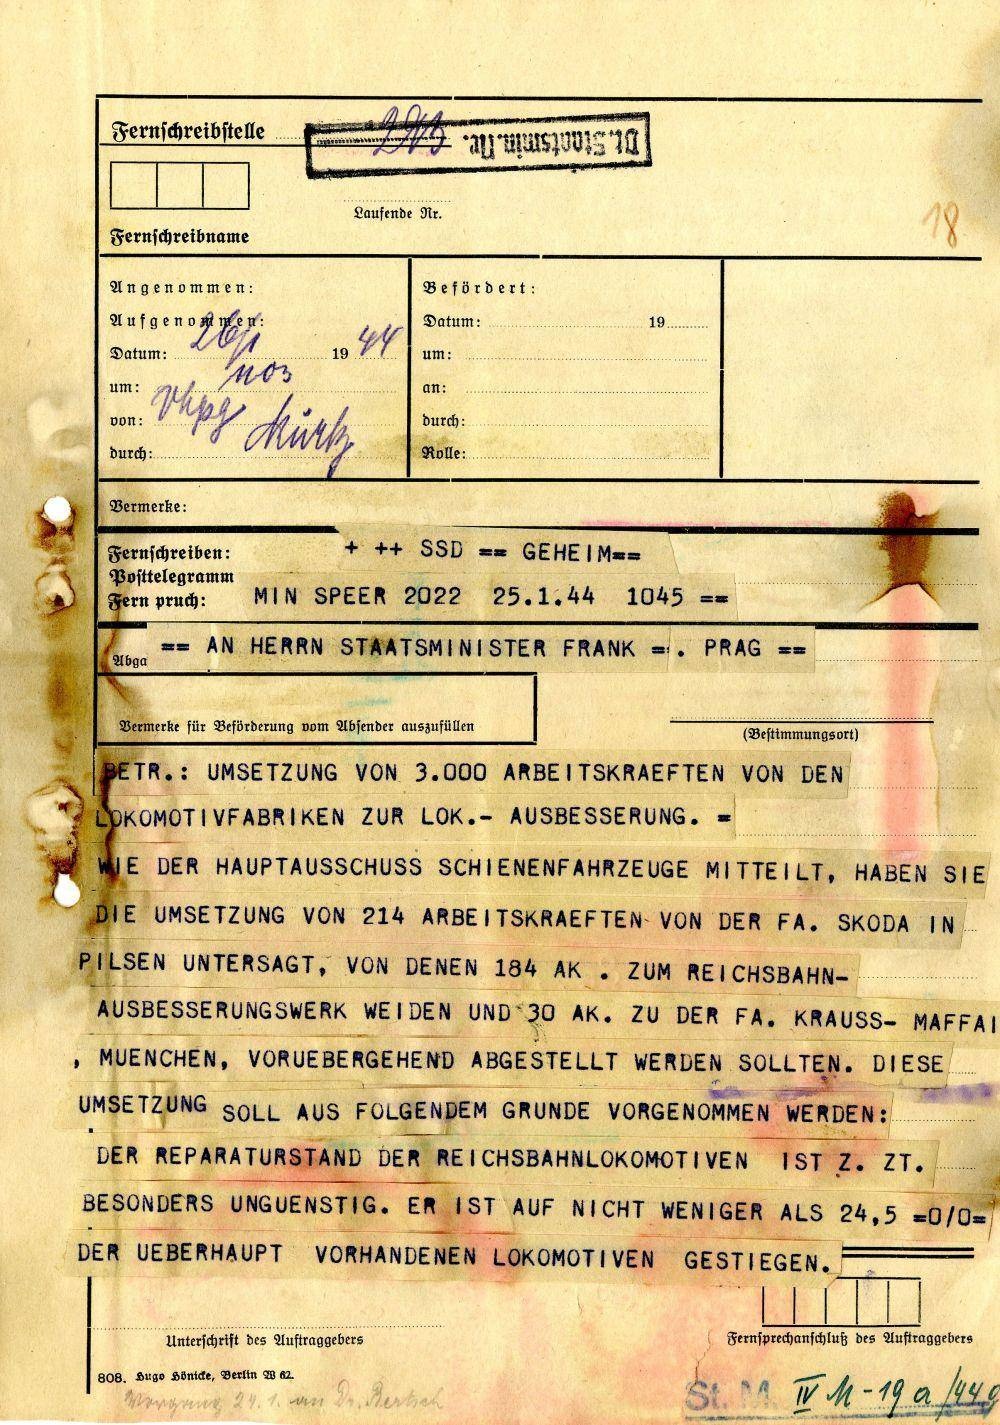 Fernschreibstelle
Dt. Staatsmin. Nr.
Laufende Nr.
18
Fernschreibname
Angenommen:
Aufgenommen:
Datum: 26/1 1944
um:
von:
durch: Kurtz
Befördert:
Datum: 19
um:
an:
durch:
Rolle:
Vermerke:
Fernschreiben: + ++ SSD == GEHEIM==
Posttelegramm
Fern pruch: MIN SPEER 2022 25.1.44 1045 ==
== AN HERRN STAATSMINISTER FRANK =. PRAG ==
Abga
Vermerke für Beförderung vom Absender auszufüllen
(Bestimmungsort)
BETR.: UMSETZUNG VON 3.000 ARBEITSKRAEFTEN VON DEN
LOKOMOTIVFABRIKEN ZUR LOK.- AUSBESSERUNG. =
WIE DER HAUPTAUSSCHUSS SCHIENENFAHRZEUGE MITTEILT, HABEN SIE
DIE UMSETZUNG VON 214 ARBEITSKRAEFTEN VON DER FA. SKODA IN
PILSEN UNTERSAGT, VON DENEN 184 AK . ZUM REICHSBAHN-
AUSBESSERUNGSWERK WEIDEN UND 30 AK. ZU DER FA. KRAUSS- MAFFAI
, MUENCHEN, VORUEBERGEHEND ABGESTELLT WERDEN SOLLTEN. DIESE
UMSETZUNG SOLL AUS FOLGENDEM GRUNDE VORGENOMMEN WERDEN:
DER REPARATURSTAND DER REICHSBAHNLOKOMOTIVEN IST Z. ZT.
BESONDERS UNGUENSTIG. ER IST AUF NICHT WENIGER ALS 24,5 =0/0=
DER UEBERHAUPT VORHANDENEN LOKOMOTIVEN GESTIEGEN.
Unterschrift des Auftraggebers
Fernsprechanschluß des Auftraggebers
808. Hugo Hönicke, Berlin W 62.
Vorgang 24.1. an Dr. Bertsch
St. M. IV M - 19 a /44g